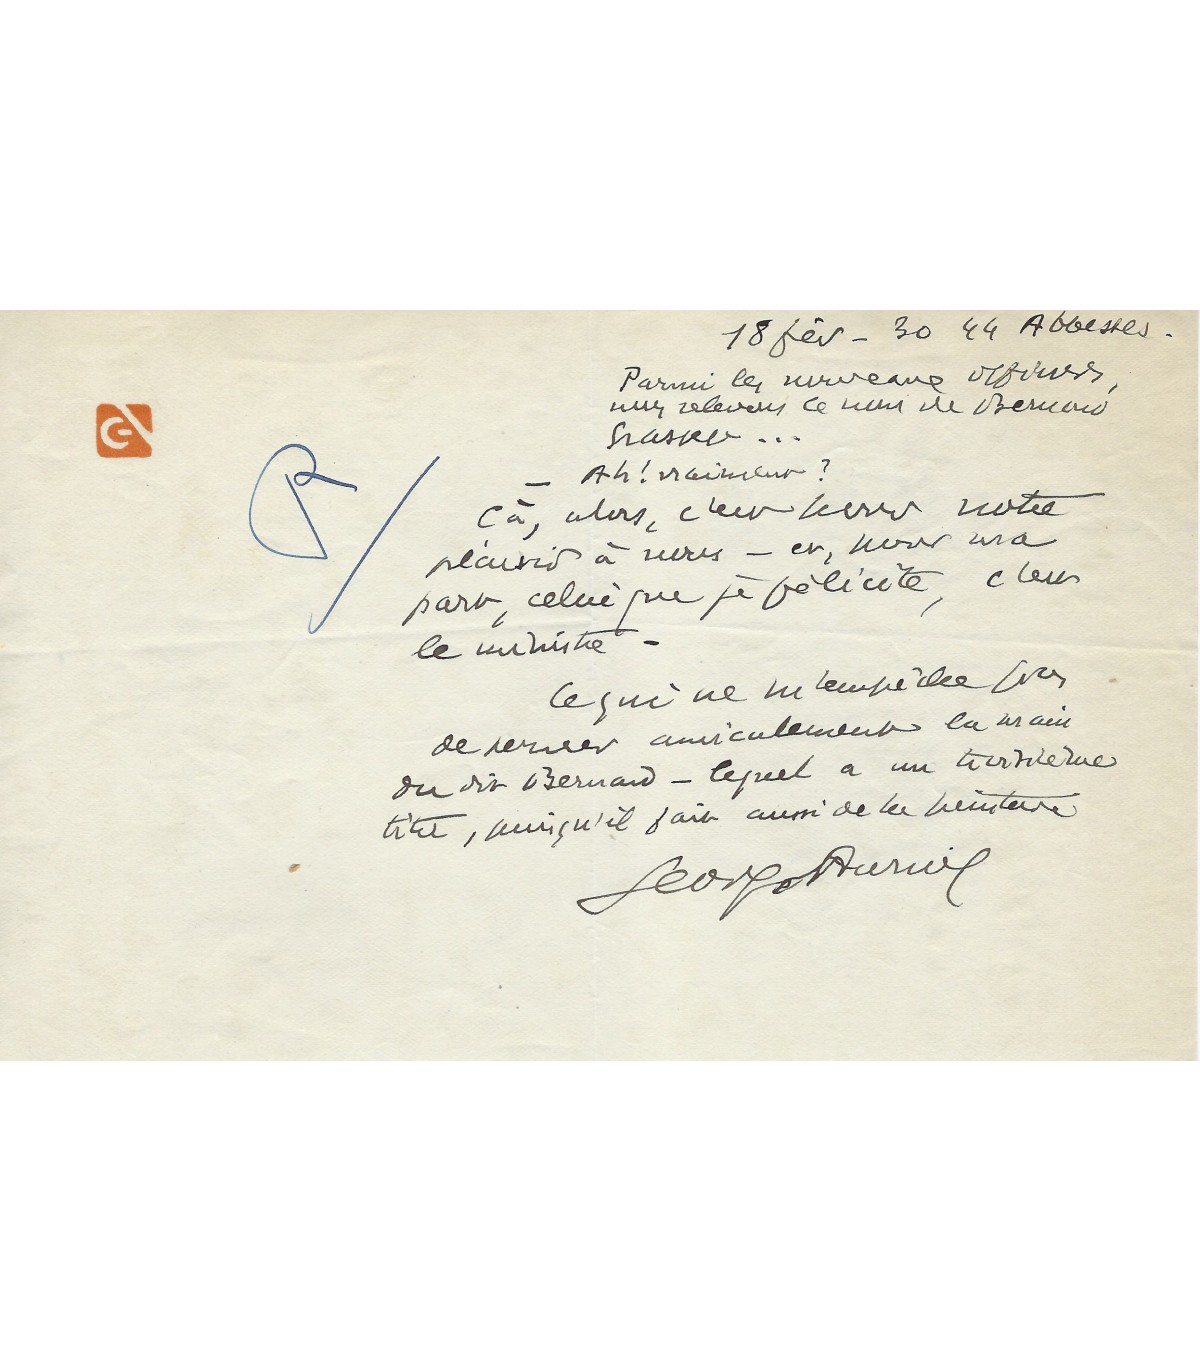 18 fév – 30 44 Abbesses.
Parmi les nouveaux officiers,
nous relevons le nom de Bernard
Grasset ...
– Ah! vraiment?
Cà, alors, c'est pour notre
plaisir à nous – et, pour ma
part, celui que je félicite, c'est
le ministre –
Ce qui ne m'empêche pas
de serrer amicalement la main
du dit Bernard – lequel a un troisième
titre, puisqu'il fait aussi de la peinture
George Auriol
R